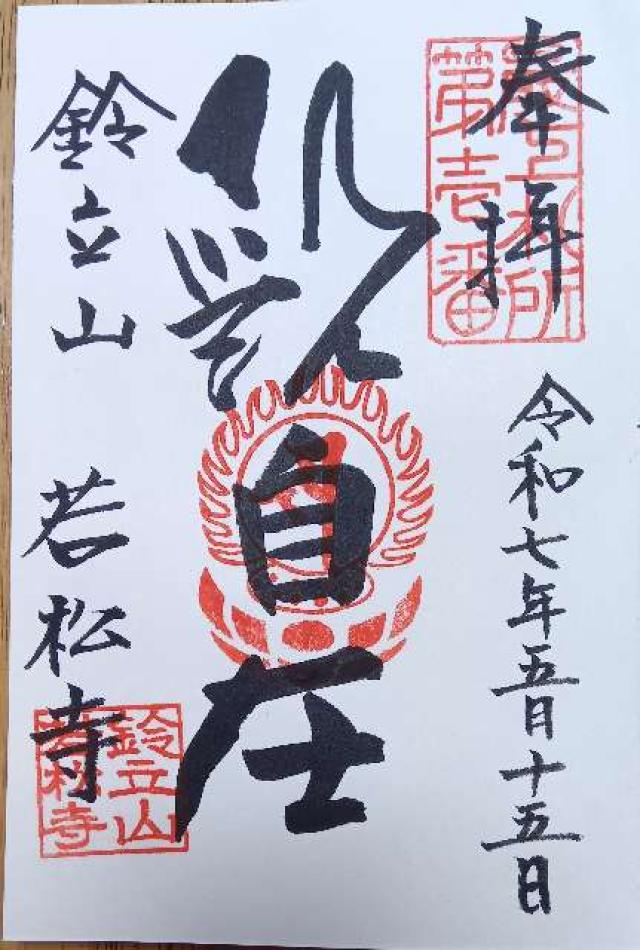 奉拝
最上札所
第壱番
令和七年五月十五日
観自在
鈴立山 若松寺
鈴立山
若松寺